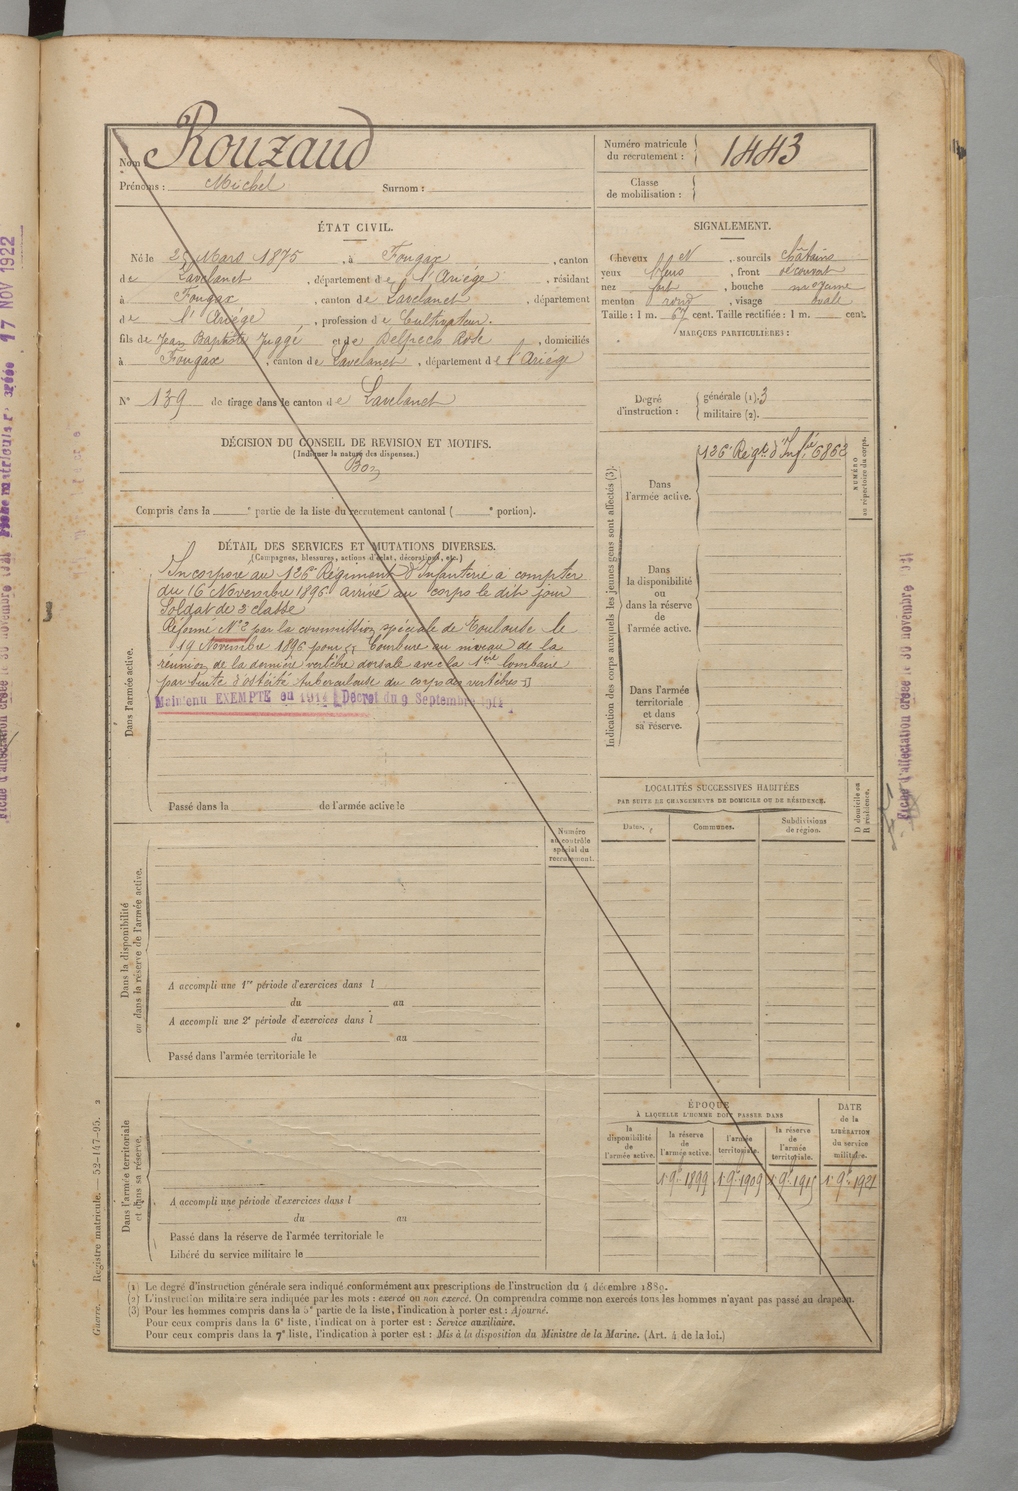 Nom Rouzaud
Prénoms : Michel Surnom :
Numéro matricule du recrutement : 1443
Classe de mobilisation :
ÉTAT CIVIL.
Né le 25 Mars 1875, à Fougax, canton
de Lavelanet, département de l'Ariége, résidant
à Fougax, canton de Lavelanet, département
de l'Ariége, profession de Cultivateur.
fils de Jean Baptiste Juggé et de Delpech Rose, domiciliés
à Fougax, canton de Lavelanet, département de l'Ariége
N° 139 de tirage dans le canton de Lavelanet
SIGNALEMENT.
Cheveux N, sourcils châtains
yeux bleus, front découvert
nez fort, bouche moyenne
menton rond, visage ovale
Taille : 1 m. 67 cent. Taille rectifiée : 1 m. cent.
MARQUES PARTICULIÈRES :
Degré d'instruction : générale (1). 3
militaire (2).
DÉCISION DU CONSEIL DE REVISION ET MOTIFS.
(Indiquer la nature des dispenses.)
Bon
Compris dans la e partie de la liste du recrutement cantonal ( e portion).
DÉTAIL DES SERVICES ET MUTATIONS DIVERSES.
(Campagnes, blessures, actions d'éclat, décorations, etc.)
Dans l'armée active.
Incorporé au 126e Régiment d'Infanterie à compter
du 16 Novembre 1896 arrivé au corps le dit jour
Soldat de 2 classe
Réformé N°2 par la commission spéciale de Toulouse le
19 Novembre 1896 pour Courbure au niveau de la
réunion de la dernière vertèbre dorsale avec la 1ère lombaire
par suite d'ostéité tuberculeuse du corps des vertèbres
Maintenu EXEMPTÉ en 1914 Décret du 9 Septembre 1914
Passé dans la de l'armée active le
Indication des corps auxquels les jeunes gens sont affectés (3).
NUMÉRO au répertoire du corps.
Dans l'armée active.
126e Régt d'Infie 6862
Dans la disponibilité ou dans la réserve de l'armée active.
Dans l'armée territoriale et dans sa réserve.
LOCALITÉS SUCCESSIVES HABITÉES
PAR SUITE DE CHANGEMENTS DE DOMICILE OU DE RÉSIDENCE.
Dates.
Communes.
Subdivisions de région.
D domicile ou R résidence.
Numéro au contrôle spécial du recrutement.
Dans la disponibilité ou dans la réserve de l'armée active.
A accompli une 1re période d'exercices dans l
du au
A accompli une 2e période d'exercices dans l
du au
Passé dans l'armée territoriale le
Dans l'armée territoriale et dans sa réserve.
A accompli une période d'exercices dans l
du au
Passé dans la réserve de l'armée territoriale le
Libéré du service militaire le
ÉPOQUE
À LAQUELLE L'HOMME DOIT PASSER DANS
la disponibilité de l'armée active.
la réserve de l'armée active.
l'armée territoriale.
la réserve de l'armée territoriale.
DATE de la LIBÉRATION du service militaire.
1er 9bre 1899
1er 9bre 1909
1er 9bre 1915
1er 9bre 1921
(1) Le degré d'instruction générale sera indiqué conformément aux prescriptions de l'instruction du 4 décembre 1889.
(2) L'instruction militaire sera indiquée par les mots : exercé ou non exercé. On comprendra comme non exercés tous les hommes n'ayant pas passé au drapeau.
(3) Pour les hommes compris dans la 5e partie de la liste, l'indication à porter est : Ajourné.
Pour ceux compris dans la 6e liste, l'indication à porter est : Service auxiliaire.
Pour ceux compris dans la 7e liste, l'indication à porter est : Mis à la disposition du Ministre de la Marine. (Art. 4 de la loi.)
Guerre. Registre matricule. — 52-147-95. 2
17 NOV 1922
Fiche d'affectation créée le 30 novembre